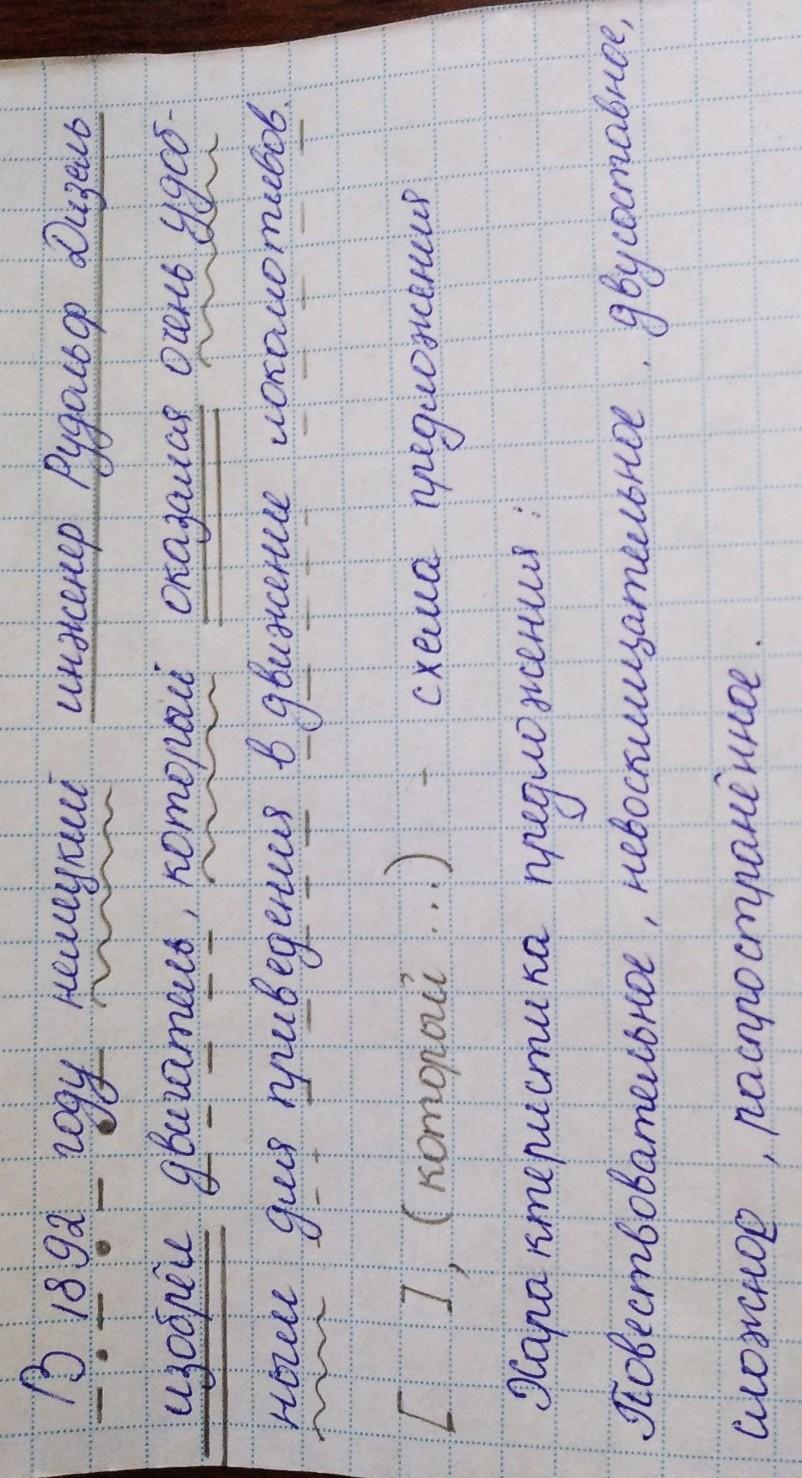 В 1892 году немецкий инженер Рудольф Дизель
изобрёл двигатель, который оказался очень удоб-
ным для приведения в движение локомотивов.
[ ], (который ...) - схема предложения
Характеристика предложения:
Повествовательное, невосклицательное, двусоставное,
сложное, распространённое.